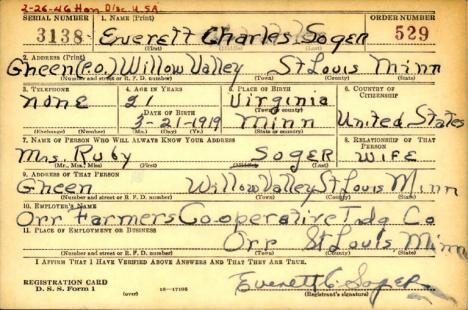 2-26-46 Hon. Disc. U.S.A.
SERIAL NUMBER 1. NAME (Print) ORDER NUMBER
3138 Everett Charles Soger 529
(First) (Middle) (Last)
2. ADDRESS (Print)
Gheen (P.O.) Willow Valley St Louis Minn
(Number and street or R. F. D. number) (Town) (County) (State)
3. TELEPHONE 4. AGE IN YEARS 5. PLACE OF BIRTH 6. COUNTRY OF CITIZENSHIP
none 21 Virginia
DATE OF BIRTH (Town or county)
3-21-1919 Minn United States
(Exchange) (Number) (Mo.) (Day) (Yr.) (State or country)
7. NAME OF PERSON WHO WILL ALWAYS KNOW YOUR ADDRESS 8. RELATIONSHIP OF THAT PERSON
Mrs. Ruby Soger Wife
(Mr., Mrs., Miss) (First) (Middle) (Last)
9. ADDRESS OF THAT PERSON
Gheen Willow Valley St Louis Minn
(Number and street or R. F. D. number) (Town) (County) (State)
10. EMPLOYER'S NAME
Orr Farmers Co-operative Tndg Co
11. PLACE OF EMPLOYMENT OR BUSINESS
Orr St Louis Minn
(Number and street or R. F. D. number) (Town) (County) (State)
I AFFIRM THAT I HAVE VERIFIED ABOVE ANSWERS AND THAT THEY ARE TRUE.
REGISTRATION CARD
D. S. S. Form 1 (over) 16—17105 Everett C. Soger
(Registrant's signature)